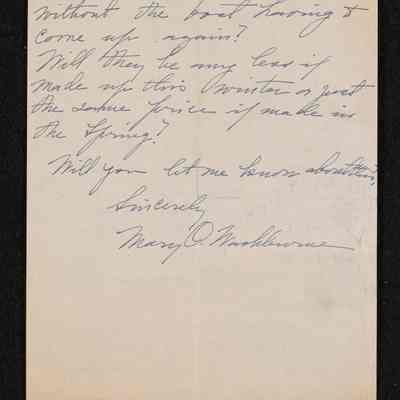 without the boat having to
come up again?
Will they be any less if
made up this winter or just
the same price if made in
the Spring?
Will you let me know about this,
Sincerely
Mary O. Washburne